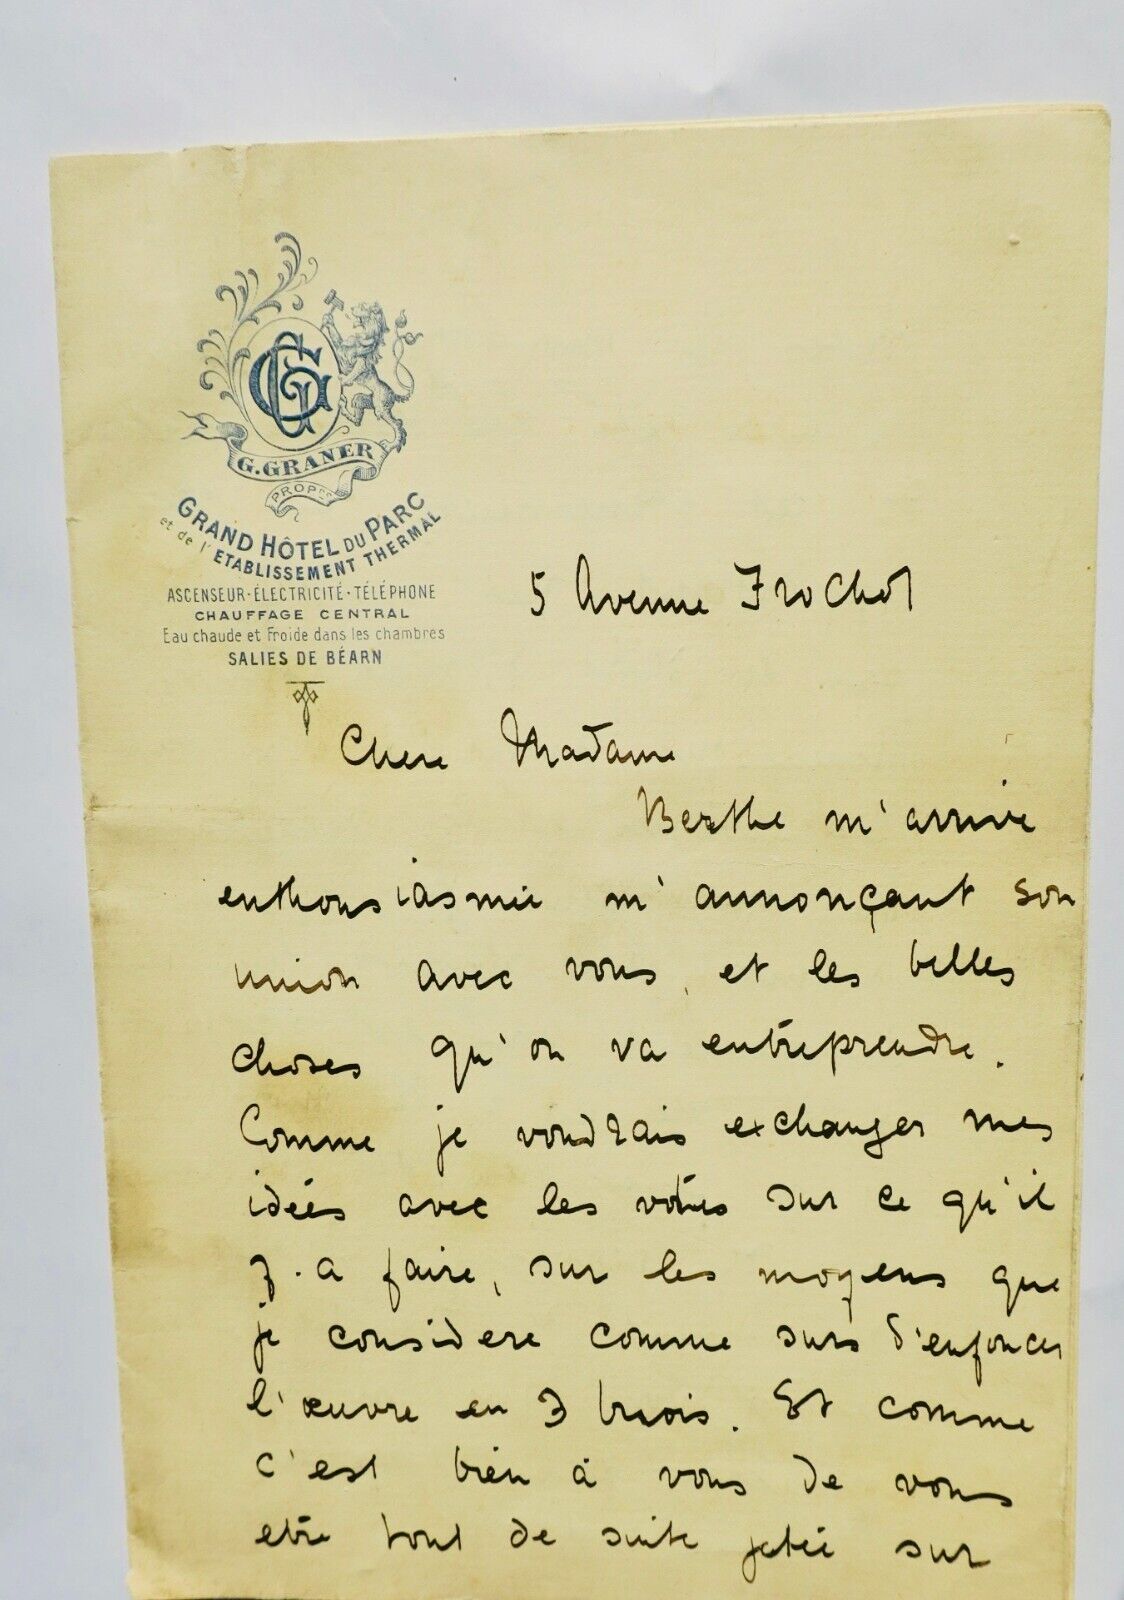 GG
G. GRANER
PROP^RE
GRAND HÔTEL DU PARC
et de l'ETABLISSEMENT THERMAL
ASCENSEUR·ÉLECTRICITÉ·TÉLÉPHONE
CHAUFFAGE CENTRAL
Eau chaude et Froide dans les chambres
SALIES DE BÉARN
5 Avenue Frochot
Chere Madame
Berthe m'arrive
enthousiasmée m'annonçant son
union avec vous, et les belles
choses qu'on va entreprendre.
Comme je voudrais exchanger mes
idées avec les votres sur ce qu'il
y.a faire, sur les moyens que
je considere comme surs d'enfoncer
l'œuvre en 3 mois. Et comme
c'est bien à vous de vous
etre tout de suite jetée sur